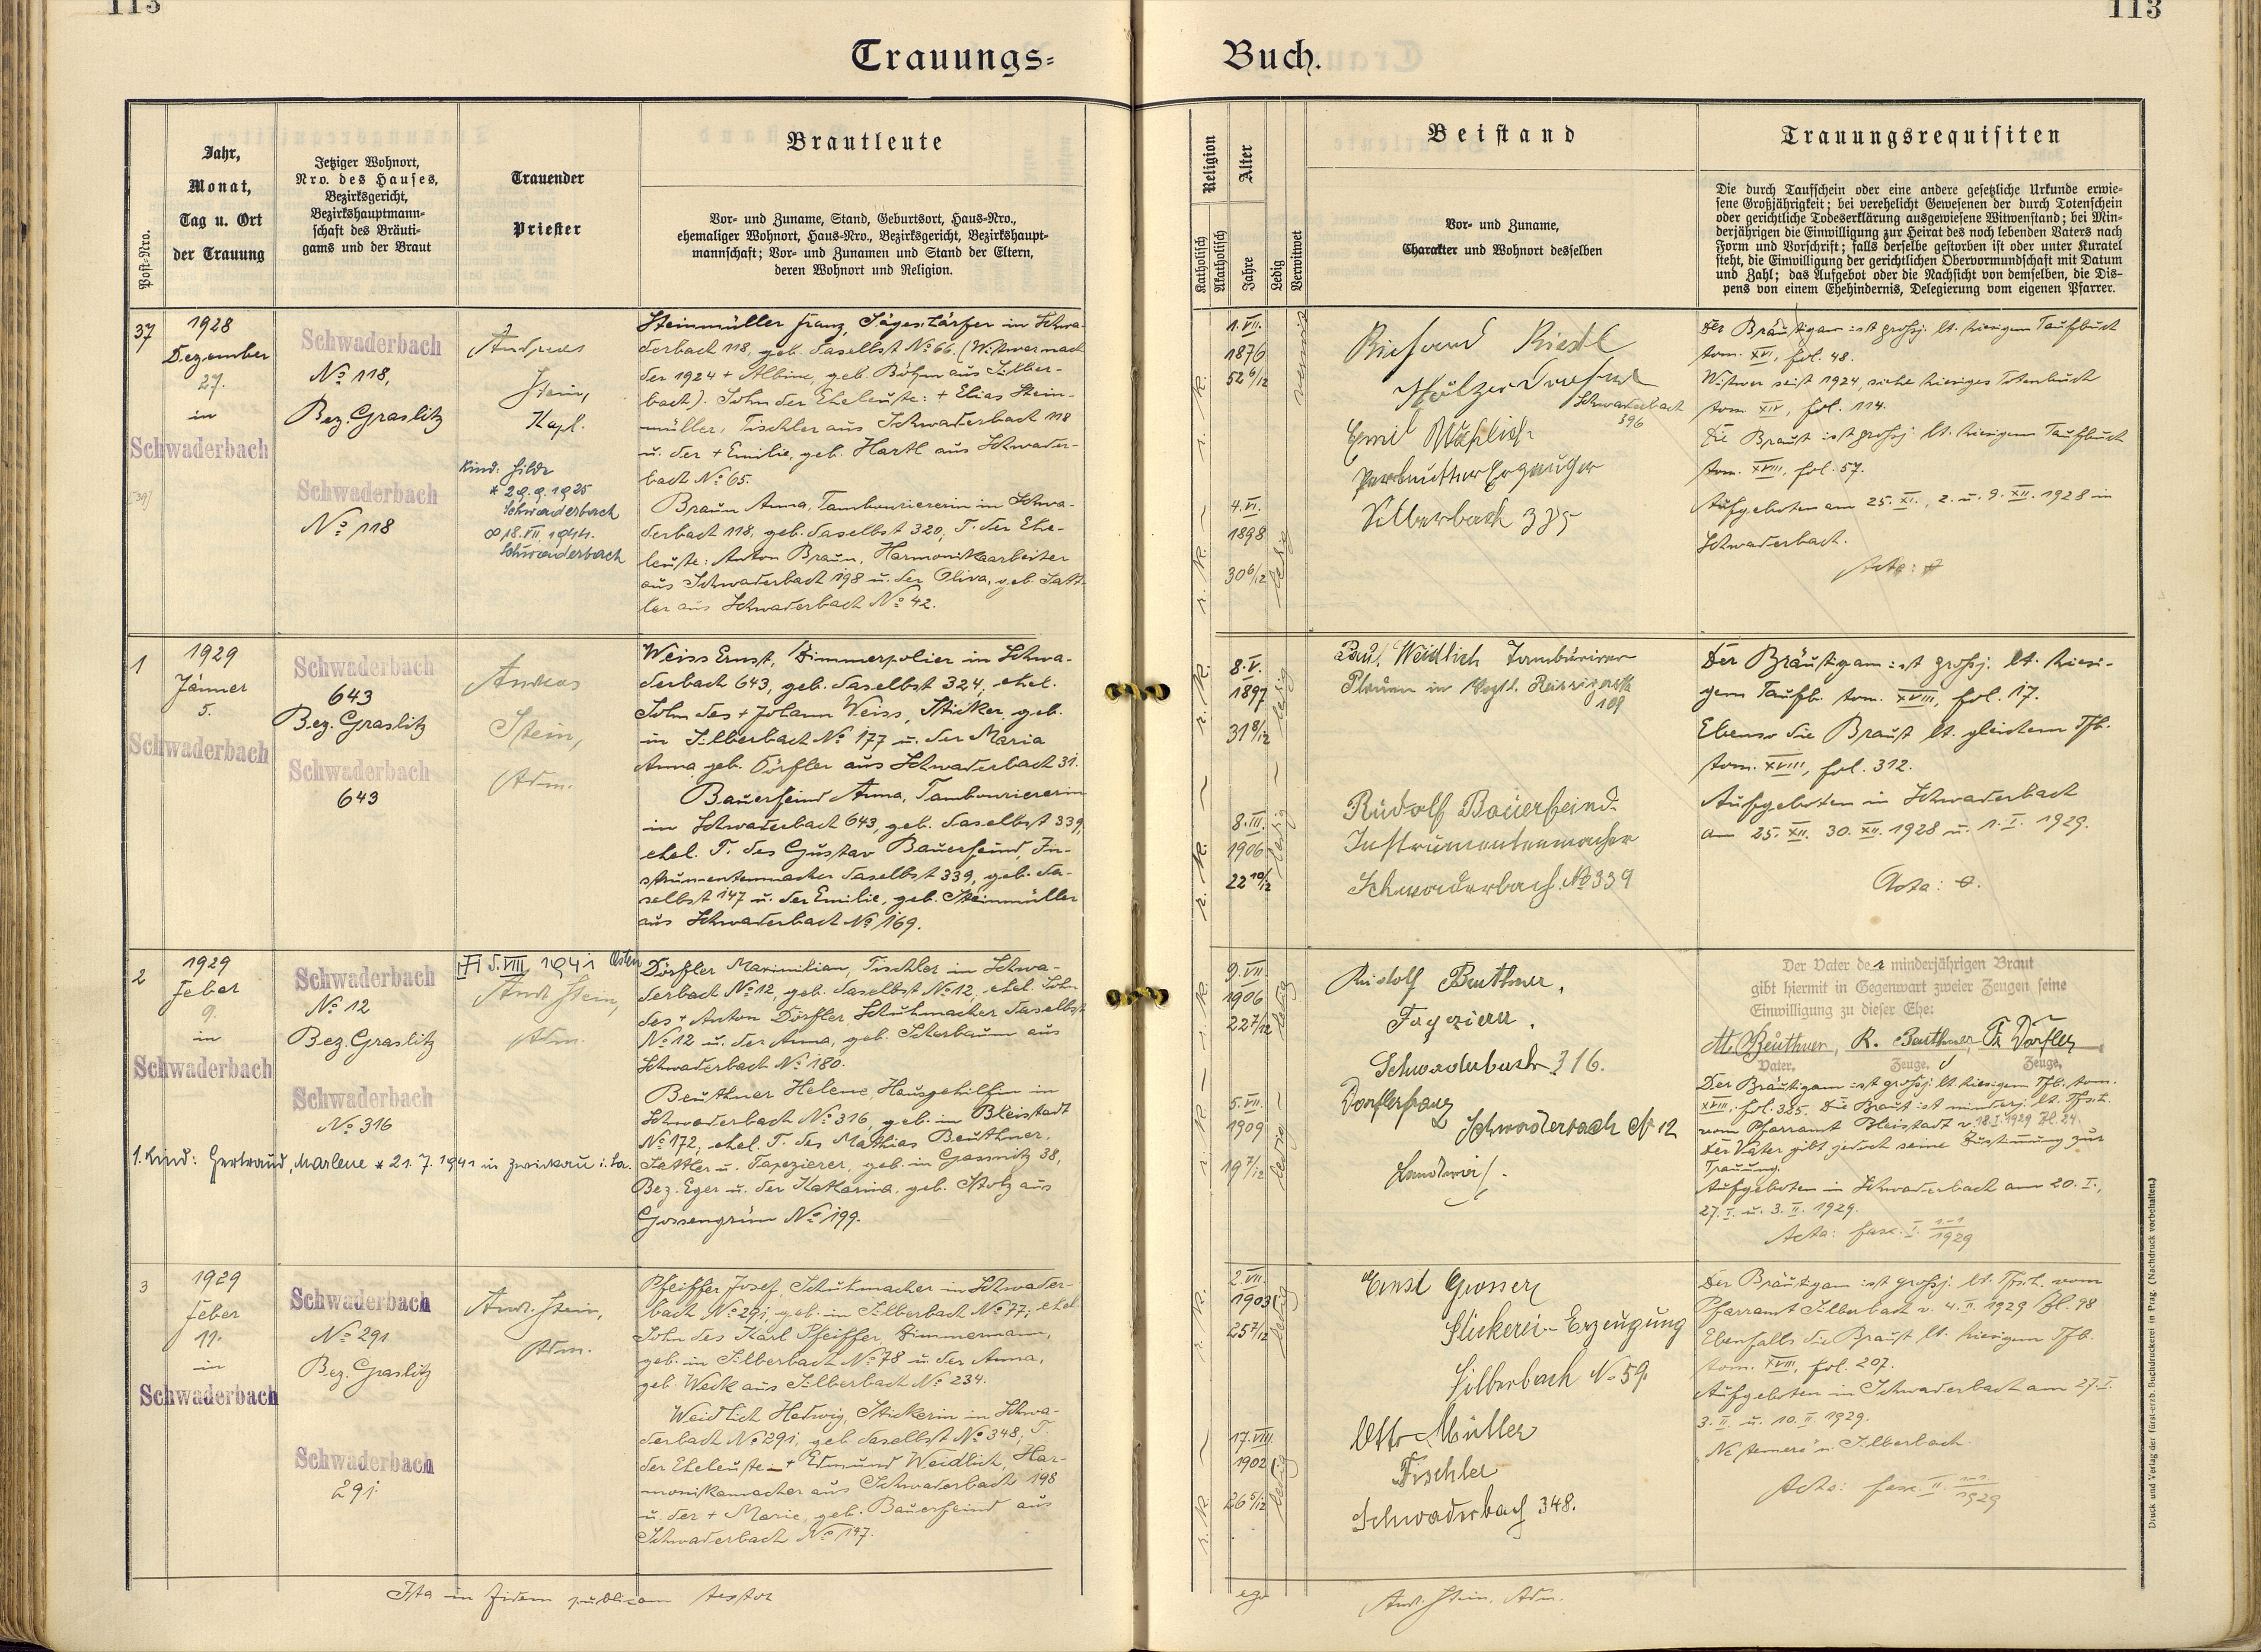 113
113
Trauungs=
Buch.
Post=Nro.
Jahr,
Monat,
Tag u. Ort
der Trauung
Jetziger Wohnort,
Nro. des Hauses,
Bezirksgericht,
Bezirkshauptmann=
schaft des Bräuti=
gams und der Braut
Trauender
Priester
Brautleute
Vor= und Zuname, Stand, Geburtsort, Haus=Nro.,
ehemaliger Wohnort, Haus=Nro., Bezirksgericht, Bezirkshaupt=
mannschaft; Vor= und Zunamen und Stand der Eltern,
deren Wohnort und Religion.
Religion
Katholisch
Akatholisch
Alter
Jahre
Ledig
Verwitwet
Beistand
Vor= und Zuname,
Charakter und Wohnort desselben
Trauungsrequisiten
Die durch Taufschein oder eine andere gesetzliche Urkunde erwie=
sene Großjährigkeit; bei verehelicht Gewesenen der durch Totenschein
oder gerichtliche Todeserklärung ausgewiesene Witwenstand; bei Min=
derjährigen die Einwilligung zur Heirat des noch lebenden Vaters nach
Form und Vorschrift; falls derselbe gestorben ist oder unter Kuratel
steht, die Einwilligung der gerichtlichen Obervormundschaft mit Datum
und Zahl; das Aufgebot oder die Nachsicht von demselben, die Dis=
pens von einem Ehehindernis, Delegierung vom eigenen Pfarrer.
37
1928
Dezember
27.
in
Schwaderbach
Schwaderbach
No 118,
Bez. Graslitz
Schwaderbach
No 118
Andreas
Stein,
Kapl.
Kind: Hilde
* 29.9.1925
Schwaderbach
∞ 18.VII.1944.
Schwaderbach
Steinmüller Franz, Sägeschärfer in Schwa-
derbach 118, geb. daselbst No 66. (Witwer nach
der 1924 + Albine, geb. Böhm aus Silber-
bach). Sohn der Eheleute: + Elias Stein-
müller, Tischler aus Schwaderbach 118
u. der + Emilie, geb. Hartl aus Schwader-
bach No 65.
Braun Anna, Tambouriererin in Schwa-
derbach 118, geb. daselbst 320, T. der Ehe-
leute: Anton Braun, Harmonikaarbeiter
aus Schwaderbach 198 u. der Oliva, geb. Satt-
ler aus Schwaderbach No 42.
r. k.
1. VII.
1876
52 6/12
verwitwet
r. k.
4. VI.
1898
30 6/12
ledig
Richard Riedl
Schwaderbach
396
Emil
Silberbach 335
Der Bräutigam ist großj. lt. hiesigem Taufbuch
tom. XVI, fol. 48.
Witwer seit 1924, siehe hiesiges Totenbuch
tom. XIV, fol. 114.
Die Braut ist großj. lt. hiesigem Taufbuch
tom. XVIII, fol. 57.
Aufgeboten am 25. XI., 2. u. 9. XII. 1928 in
Schwaderbach.
Acta:
1
1929
Jänner
5.
Schwaderbach
Schwaderbach
643
Bez. Graslitz
Schwaderbach
643
Andreas
Stein,
Adm.
Weiss Ernst, Zimmerpolier in Schwa-
derbach 643, geb. daselbst 324, ehel.
Sohn des + Johann Weiss, Sticker, geb.
in Silberbach No 177 u. der Maria
Anna geb. Dörfler aus Schwaderbach 31.
Bauerfeind Anna, Tambouriererin
in Schwaderbach 643, geb. daselbst 339,
ehel. T. des Gustav Bauerfeind, In-
strumentenmacher daselbst 339, geb. da-
selbst 147 u. der Emilie, geb. Steinmüller
aus Schwaderbach No 169.
r. k.
8. V.
1897
31 8/12
ledig
r. k.
8. III.
1906
22 10/12
ledig
Paul Weidlich
Plauen in Vogtl.
109
Rudolf Bauerfeind.
Instrumentenmacher
Schwaderbach No 339
Der Bräutigam ist großj. lt. hiesi-
gem Taufb. tom. XVIII, fol. 17.
Ebenso die Braut lt. gleichem Tfb.
tom. XVIII, fol. 312.
Aufgeboten in Schwaderbach
am 25. XII. 30. XII. 1928 u. 1. I. 1929.
Acta:
2
1929
Feber
9.
in
Schwaderbach
Schwaderbach
No 12
Bez. Graslitz
Schwaderbach
No 316
VIII 1941 Osten
And. Stein,
Adm.
1. Kind: Gertraud, Marlene * 21. 7. 1941 in Zwickau i. Sa.
Dörfler Maximilian, Tischler in Schwa-
derbach No 12, geb. daselbst No 12, ehel. Sohn
des + Anton Dörfler, Schuhmacher daselbst
No 12 u. der Anna, geb. Scherbaum aus
Schwaderbach No 180.
Beuthner Helene, Hausgehilfin in
Schwaderbach No 316, geb. in Bleistadt
No 172, ehel. T. des Mathias Beuthner,
Sattler u. Tapezierer, geb. in Gassnitz 38,
Bez. Eger u. der Katharina, geb. Stolz aus
Gossengrün No 199.
r. k.
9. VII.
1906
22 7/12
ledig
r. k.
5. VII.
1909
19 7/12
ledig
Rudolf Beuthner,
Schwaderbach 316.
Dörfler Franz
Schwaderbach No 12
Landwirt.
Der Vater der minderjährigen Braut
gibt hiermit in Gegenwart zweier Zeugen seine
Einwilligung zu dieser Ehe:
M. Beuthner, R. Beuthner, Fr. Dörfler
Vater. Zeuge. Zeuge.
Der Bräutigam ist großj. lt. hiesigem Tfb. tom.
XVIII, fol. 325. Die Braut ist minderj. lt. Tfsch.
vom Pfarramt Bleistadt v. 18. I. 1929 Zl. 24.
Der Vater gibt jedoch seine Zustimmung zur
Trauung.
Aufgeboten in Schwaderbach am 20. I.,
27. I. u. 3. II. 1929.
Acta: fasc. I. 1-1/1929
3
1929
Feber
11.
in
Schwaderbach
Schwaderbach
No 291
Bez. Graslitz
Schwaderbach
291
And. Stein,
Adm.
Pfeiffer Josef, Schuhmacher in Schwader-
bach No 291, geb. in Silberbach No 77, ehel.
Sohn des Karl Pfeiffer, Zimmermann,
geb. in Silberbach No 78 u. der Anna,
geb. Weck aus Silberbach No 234.
Weidlich Hedwig, Stickerin in Schwa-
derbach No 291, geb. daselbst No 348, T.
der Eheleute + Edmund Weidlich, Har-
monikamacher aus Schwaderbach 198
u. der + Marie, geb. Bauerfeind aus
Schwaderbach No 147.
r. k.
2. VII.
1903
25 7/12
ledig
r. k.
17. VIII.
1902
26 5/12
ledig
Ernst Grosser
Stickerei-Erzeugung
Silberbach No 59.
Otto Müller
Tischler
Schwaderbach 348.
Der Bräutigam ist großj. lt. Tfsch. vom
Pfarramt Silberbach v. 4. II. 1929 Zl. 98
Ebenfalls die Braut lt. hiesigem Tfb.
tom. XVIII, fol. 207.
Aufgeboten in Schwaderbach am 27. I.
3. II. u. 10. II. 1929.
"Ne temere" n. Silberbach.
Acta: fasc. II. 1-1/1929
Ita in fidem publicam testor
ego
And. Stein, Adm.
Druck und Verlag der fürst=erzb. Buchdruckerei in Prag. (Nachdruck vorbehalten.)